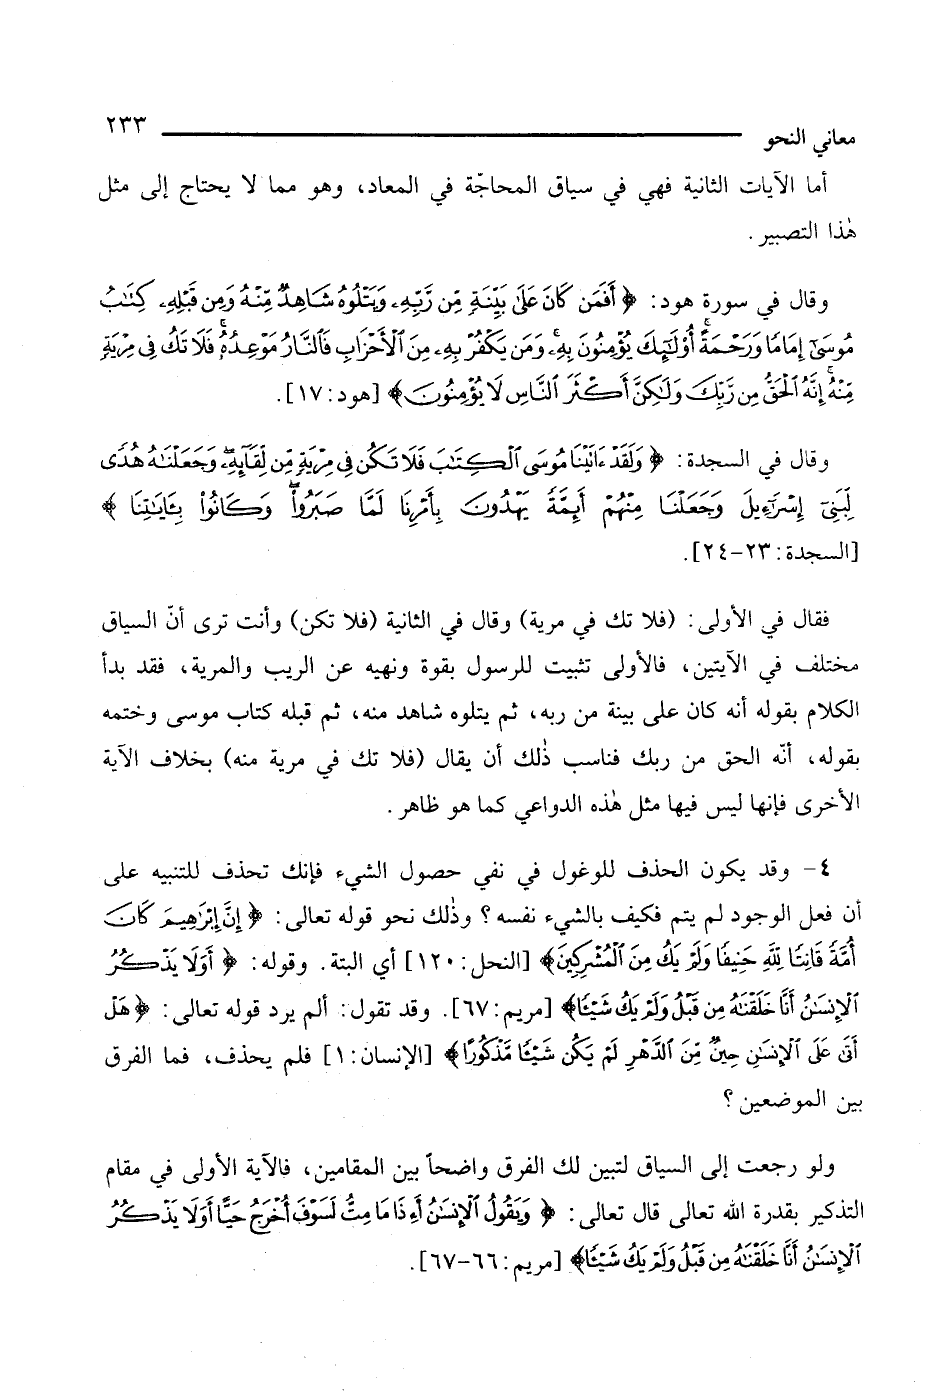 معاني النحو ٢٣٣
أما الآيات الثانية فهي في سياق المحاجّة في المعاد، وهو مما لا يحتاج إلى مثل
هٰذا التصبير.
وقال في سورة هود: ﴿أَفَمَن كَانَ عَلَىٰ بَيِّنَةٍ مِّن رَّبِّهِۦ وَيَتْلُوهُ شَاهِدٌ مِّنْهُ وَمِن قَبْلِهِۦ كِتَٰبُ
مُوسَىٰٓ إِمَامًا وَرَحْمَةً ۚ أُو۟لَٰٓئِكَ يُؤْمِنُونَ بِهِۦ ۚ وَمَن يَكْفُرْ بِهِۦ مِنَ ٱلْأَحْزَابِ فَٱلنَّارُ مَوْعِدُهُۥ ۚ فَلَا تَكُ فِى مِرْيَةٍ
مِّنْهُ ۚ إِنَّهُ ٱلْحَقُّ مِن رَّبِّكَ وَلَٰكِنَّ أَكْثَرَ ٱلنَّاسِ لَا يُؤْمِنُونَ﴾ [هود: ١٧].
وقال في السجدة: ﴿وَلَقَدْ ءَاتَيْنَا مُوسَى ٱلْكِتَٰبَ فَلَا تَكُن فِى مِرْيَةٍ مِّن لِّقَآئِهِۦ ۖ وَجَعَلْنَٰهُ هُدًى
لِّبَنِىٓ إِسْرَٰٓءِيلَ وَجَعَلْنَا مِنْهُمْ أَئِمَّةً يَهْدُونَ بِأَمْرِنَا لَمَّا صَبَرُوا۟ ۖ وَكَانُوا۟ بِـَٔايَٰتِنَا﴾
[السجدة: ٢٣-٢٤].
فقال في الأولى: (فلا تك في مرية) وقال في الثانية (فلا تكن) وأنت ترى أنّ السياق
مختلف في الآيتين، فالأولى تثبيت للرسول بقوة ونهيه عن الريب والمرية، فقد بدأ
الكلام بقوله أنه كان على بينة من ربه، ثم يتلوه شاهد منه، ثم قبله كتاب موسى وختمه
بقوله، أنّه الحق من ربك فناسب ذٰلك أن يقال (فلا تك في مرية منه) بخلاف الآية
الأخرى فإنها ليس فيها مثل هٰذه الدواعي كما هو ظاهر.
٤- وقد يكون الحذف للوغول في نفي حصول الشيء فإنك تحذف للتنبيه على
أن فعل الوجود لم يتم فكيف بالشيء نفسه؟ وذٰلك نحو قوله تعالى: ﴿إِنَّ إِبْرَٰهِيمَ كَانَ
أُمَّةً قَانِتًا لِّلَّهِ حَنِيفًا وَلَمْ يَكُ مِنَ ٱلْمُشْرِكِينَ﴾ [النحل: ١٢٠] أي البتة. وقوله: ﴿أَوَلَا يَذْكُرُ
ٱلْإِنسَٰنُ أَنَّا خَلَقْنَٰهُ مِن قَبْلُ وَلَمْ يَكُ شَيْـًٔا﴾ [مريم: ٦٧]. وقد تقول: ألم يرد قوله تعالى: ﴿هَلْ
أَتَىٰ عَلَى ٱلْإِنسَٰنِ حِينٌ مِّنَ ٱلدَّهْرِ لَمْ يَكُن شَيْـًٔا مَّذْكُورًا﴾ [الإنسان: ١] فلم يحذف، فما الفرق
بين الموضعين؟
ولو رجعت إلى السياق لتبين لك الفرق واضحاً بين المقامين، فالآية الأولى في مقام
التذكير بقدرة الله تعالى قال تعالى: ﴿وَيَقُولُ ٱلْإِنسَٰنُ أَءِذَا مَا مِتُّ لَسَوْفَ أُخْرَجُ حَيًّا أَوَلَا يَذْكُرُ
ٱلْإِنسَٰنُ أَنَّا خَلَقْنَٰهُ مِن قَبْلُ وَلَمْ يَكُ شَيْـًٔا﴾ [مريم: ٦٦-٦٧].